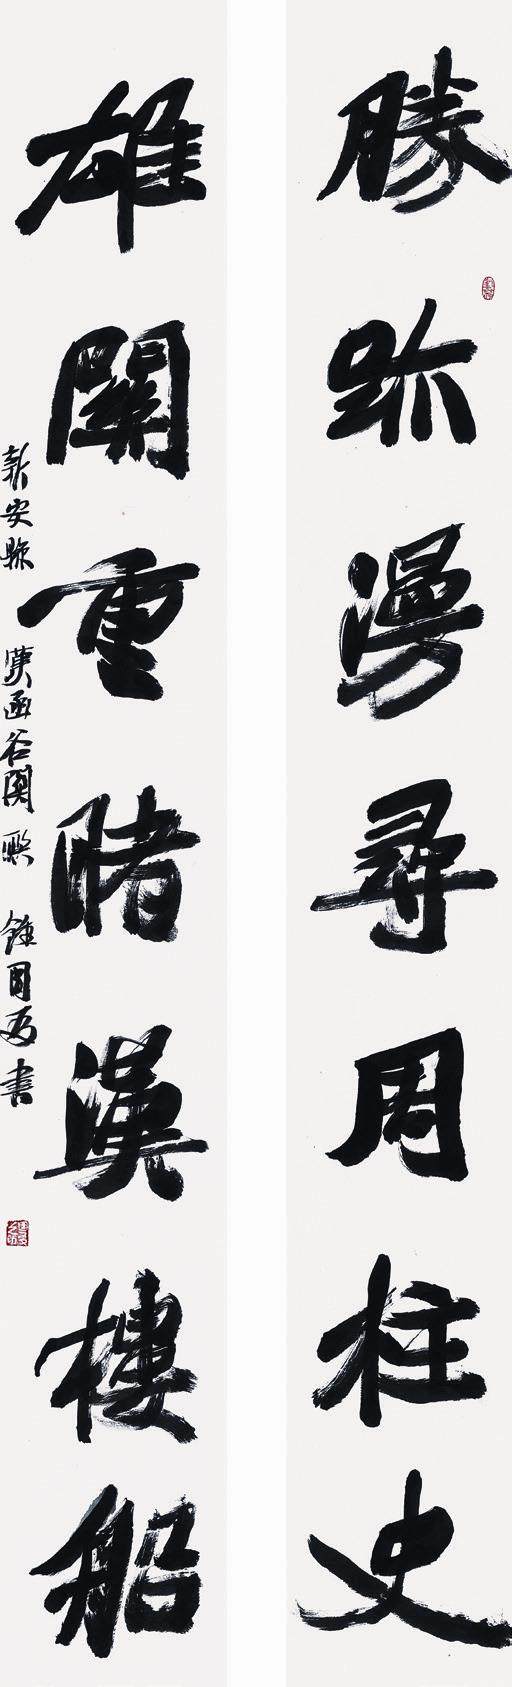 勝跡漫尋周柱史
雄關重睹漢樓船
新安縣 漢函谷關聯 鍾國為書